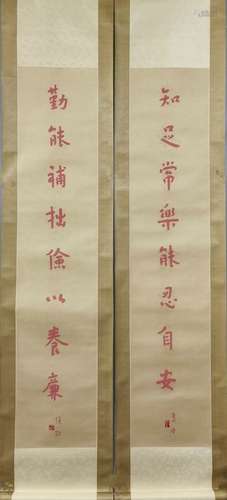 知足常樂能忍自安
勤能補拙儉以養廉